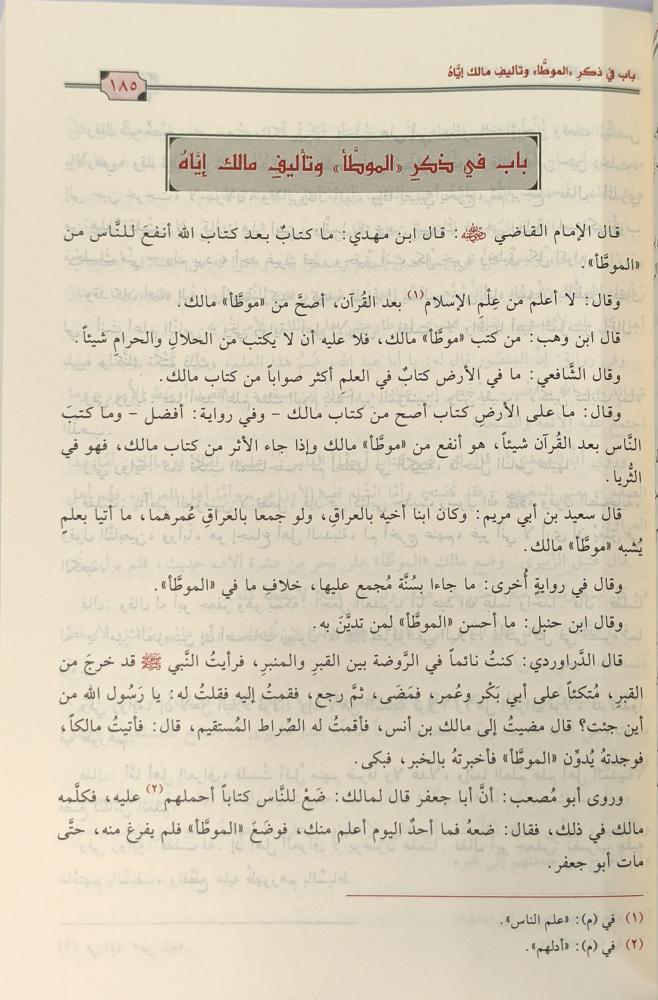 باب في ذكرِ «الموطَّأ» وتأليفِ مالك إيَّاهُ
١٨٥
باب في ذكرِ «الموطَّأ» وتأليفِ مالك إيَّاهُ
قال الإمام القاضي رضي الله عنه: قال ابن مهدي: ما كتابٌ بعد كتاب الله أنفعَ للنَّاس من
«الموطَّأ».
وقال: لا أعلم من عِلْمِ الإسلام(١) بعد القُرآن، أصحَّ من «موطَّأ» مالك.
قال ابن وهب: من كتب «موطَّأ» مالك، فلا عليه أن لا يكتب من الحلالِ والحرامِ شيئاً.
وقال الشَّافعي: ما في الأرض كتابٌ في العلمِ أكثر صواباً من كتاب مالك.
وقال: ما على الأرضِ كتاب أصح من كتاب مالك – وفي رواية: أفضل – وما كتبَ
النَّاس بعد القُرآن شيئاً، هو أنفع من «موطَّأ» مالك وإذا جاء الأثر من كتاب مالك، فهو في
الثُّريا.
قال سعيد بن أبي مريم: وكان ابنا أخيه بالعراقِ، ولو جمعا بالعراقِ عُمرهما، ما أتيا بعلمٍ
يُشبه «موطَّأ» مالك.
وقال في روايةٍ أُخرى: ما جاءا بسُنَّة مُجمع عليها، خلافِ ما في «الموطَّأ».
وقال ابن حنبل: ما أحسن «الموطَّأ» لمن تديَّنَ به.
قال الدَّراوردي: كنتُ نائماً في الرَّوضة بين القبرِ والمنبرِ، فرأيتُ النَّبي ﷺ قد خرجَ من
القبرِ، مُتكئاً على أبي بَكْر وعُمر، فمَضَى، ثمَّ رجع، فقمتُ إليه فقلتُ له: يا رَسُول الله من
أين جئت؟ قال مضيتُ إلى مالك بن أنس، فأقمتُ له الصِّراط المُستقيم، قال: فأتيتُ مالكاً،
فوجدتهُ يُدوِّن «الموطَّأ» فأخبرتهُ بالخبر، فبكى.
وروى أبو مُصعب: أنَّ أبا جعفر قال لمالك: ضَعْ للنَّاس كتاباً أحملهم(٢) عليه، فكلَّمه
مالك في ذلك، فقال: ضعهُ فما أحدٌ اليوم أعلم منك، فوضَعَ «الموطَّأ» فلم يفرغ منه، حتَّى
مات أبو جعفر.
(١) في (م): «علم الناس».
(٢) في (م): «أدلهم».